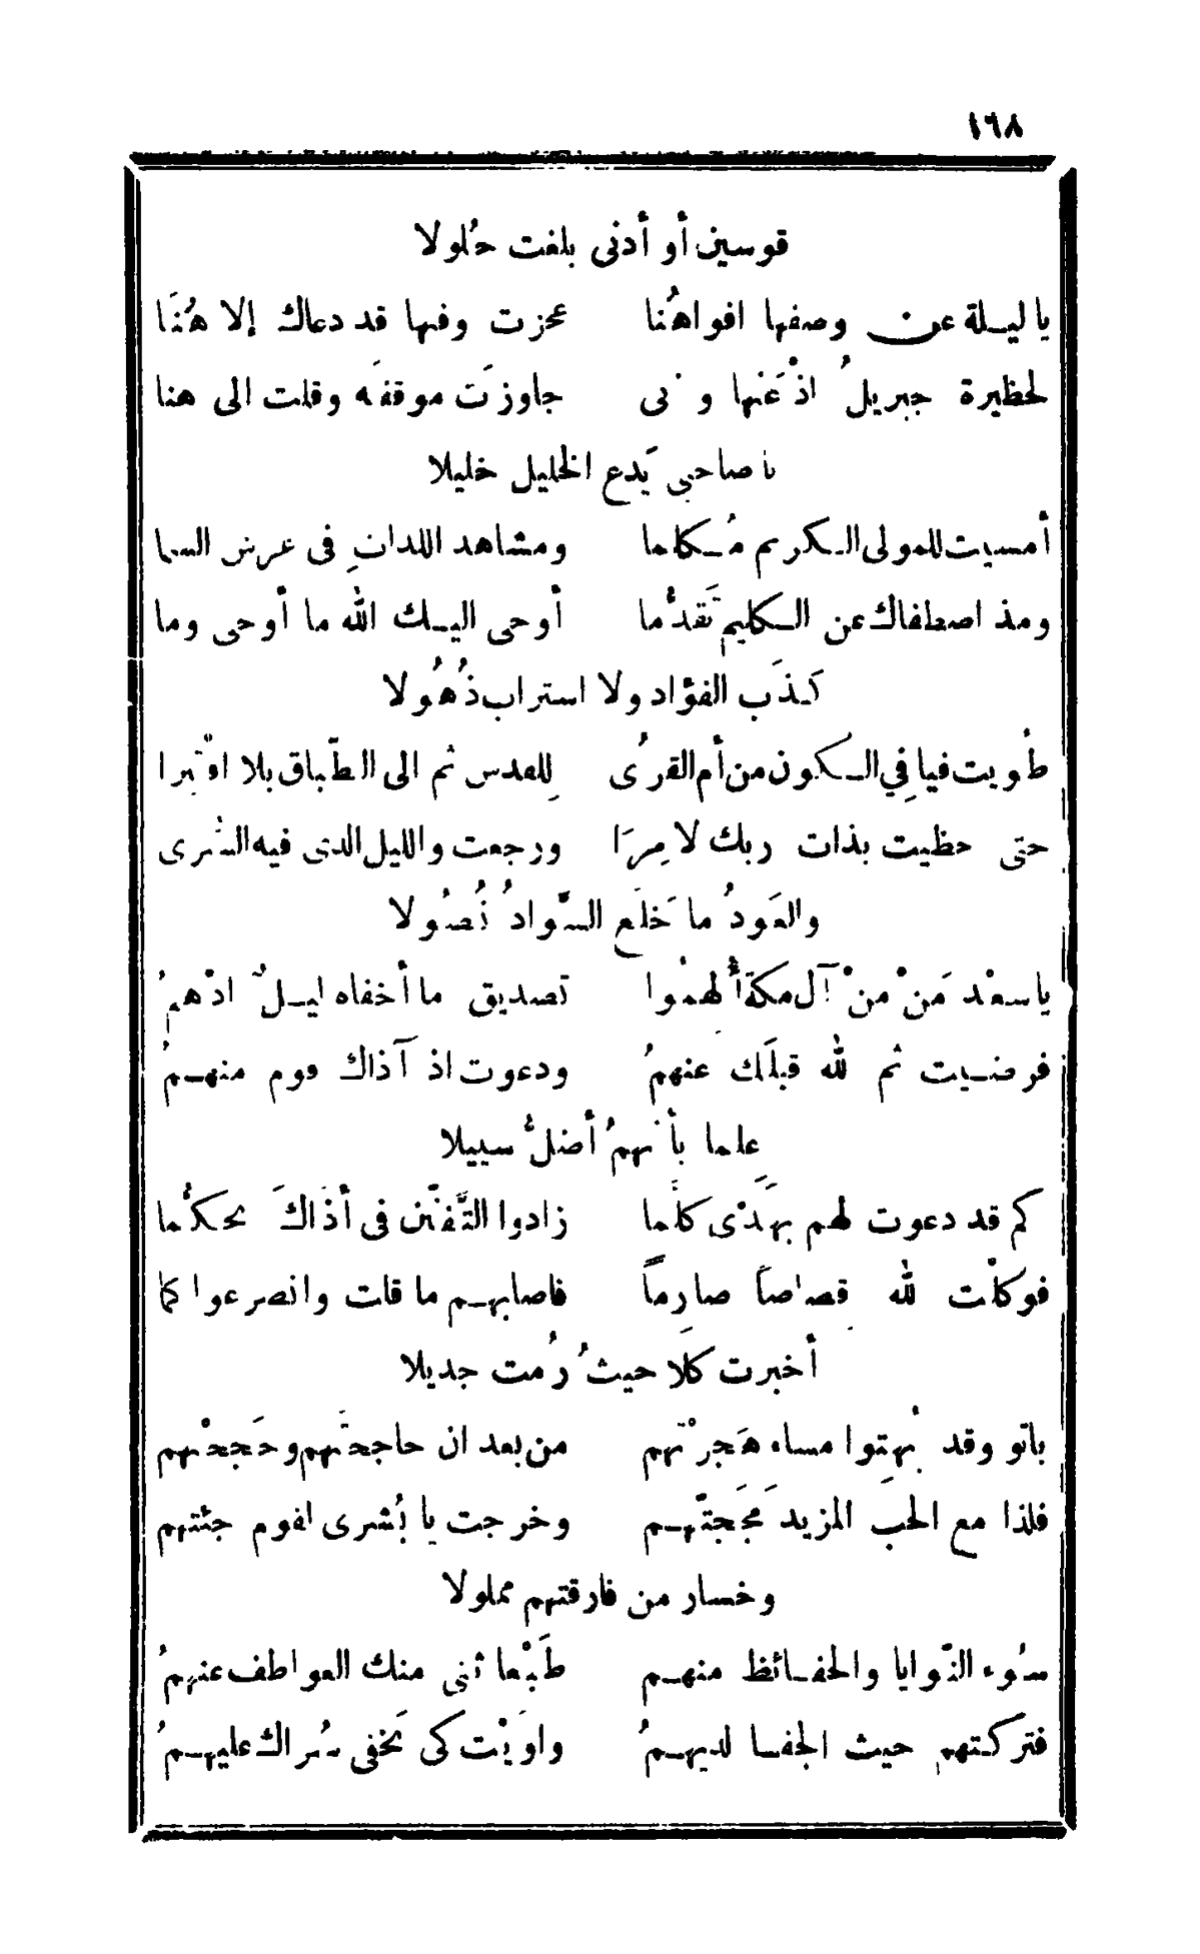 ١٦٨
قوسين أو أدنى بلغت حُلولا
يا ليـلة عن وصفها افواهُنا عجزت وفيها قد دعاك إلا هُنَا
لحظيرة جبريلُ اذْ عَنها و نى جاوزتَ موقفَه وقلت الى هنا
يا صاحبي يَدع الخليل خليلا
أمسيت للمولى الـكريم مُـكلما ومشاهد اللدانِ فى عرش السما
ومذ اصطفاك عن الـكليم تَقدُّما أوحى اليـك الله ما أوحى وما
كـذَب الفؤاد ولا استراب ذُهُولا
طُويت فيافِي الـكون من أم القرُى للقدس ثم الى الطّباق بلا افْتِرا
حتى حظيت بذات ربك لا مِرَا ورجعت والليل الذى فيه السُرى
والعَودُ ما خَلَع السّوادُ نُصُولا
يا سعْد مَنْ منْ آل مكة أُلهمْوا تصديق ما أخفاه ليـلٌ ادْهمُ
فرضـيت ثم لله قبلَك عنهمُ ودعوت اذ آذاك قوم منهـمُ
عِلما بأنهمُ أضلُّ سبيلا
كم قد دعوت لهم بهَدْى كلَّما زادوا التَّفنّن فى أذَاكَ تحكُّما
فوكلْت لله قصاصاً صارِماً فاصابهـم ما قلت وانصرعوا كما
أخبرت كَلا حيثُ رُمت جديلا
باتو وقد بُهتِوا مساء هَجرْتهم من بعد ان حاججتَهم وحَججْتهم
فلذا مع الحَب المزيدَ مَججَتّهـم وخرجت يا بُشرى لقوم جئتهم
وخسار من فارقتهم مملولا
سُوء النّوايا والحفـائظ منهـم طَبْعا ثنى منك العواطف عنهمُ
فتركـتهم حيث الجفـا لديهـمُ واوَيْت كى تَخفى سُراك عليهـمُ